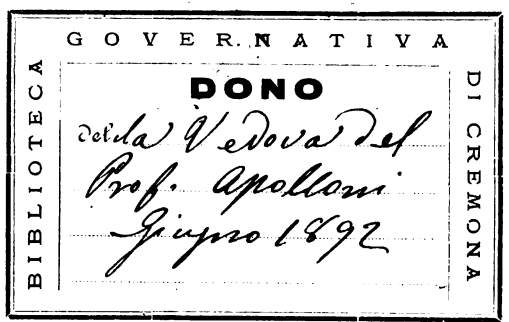 BIBLIOTECA
GOVERNATIVA
DI CREMONA
DONO
della Vedova del
Prof. Apolloni
Giugno 1892